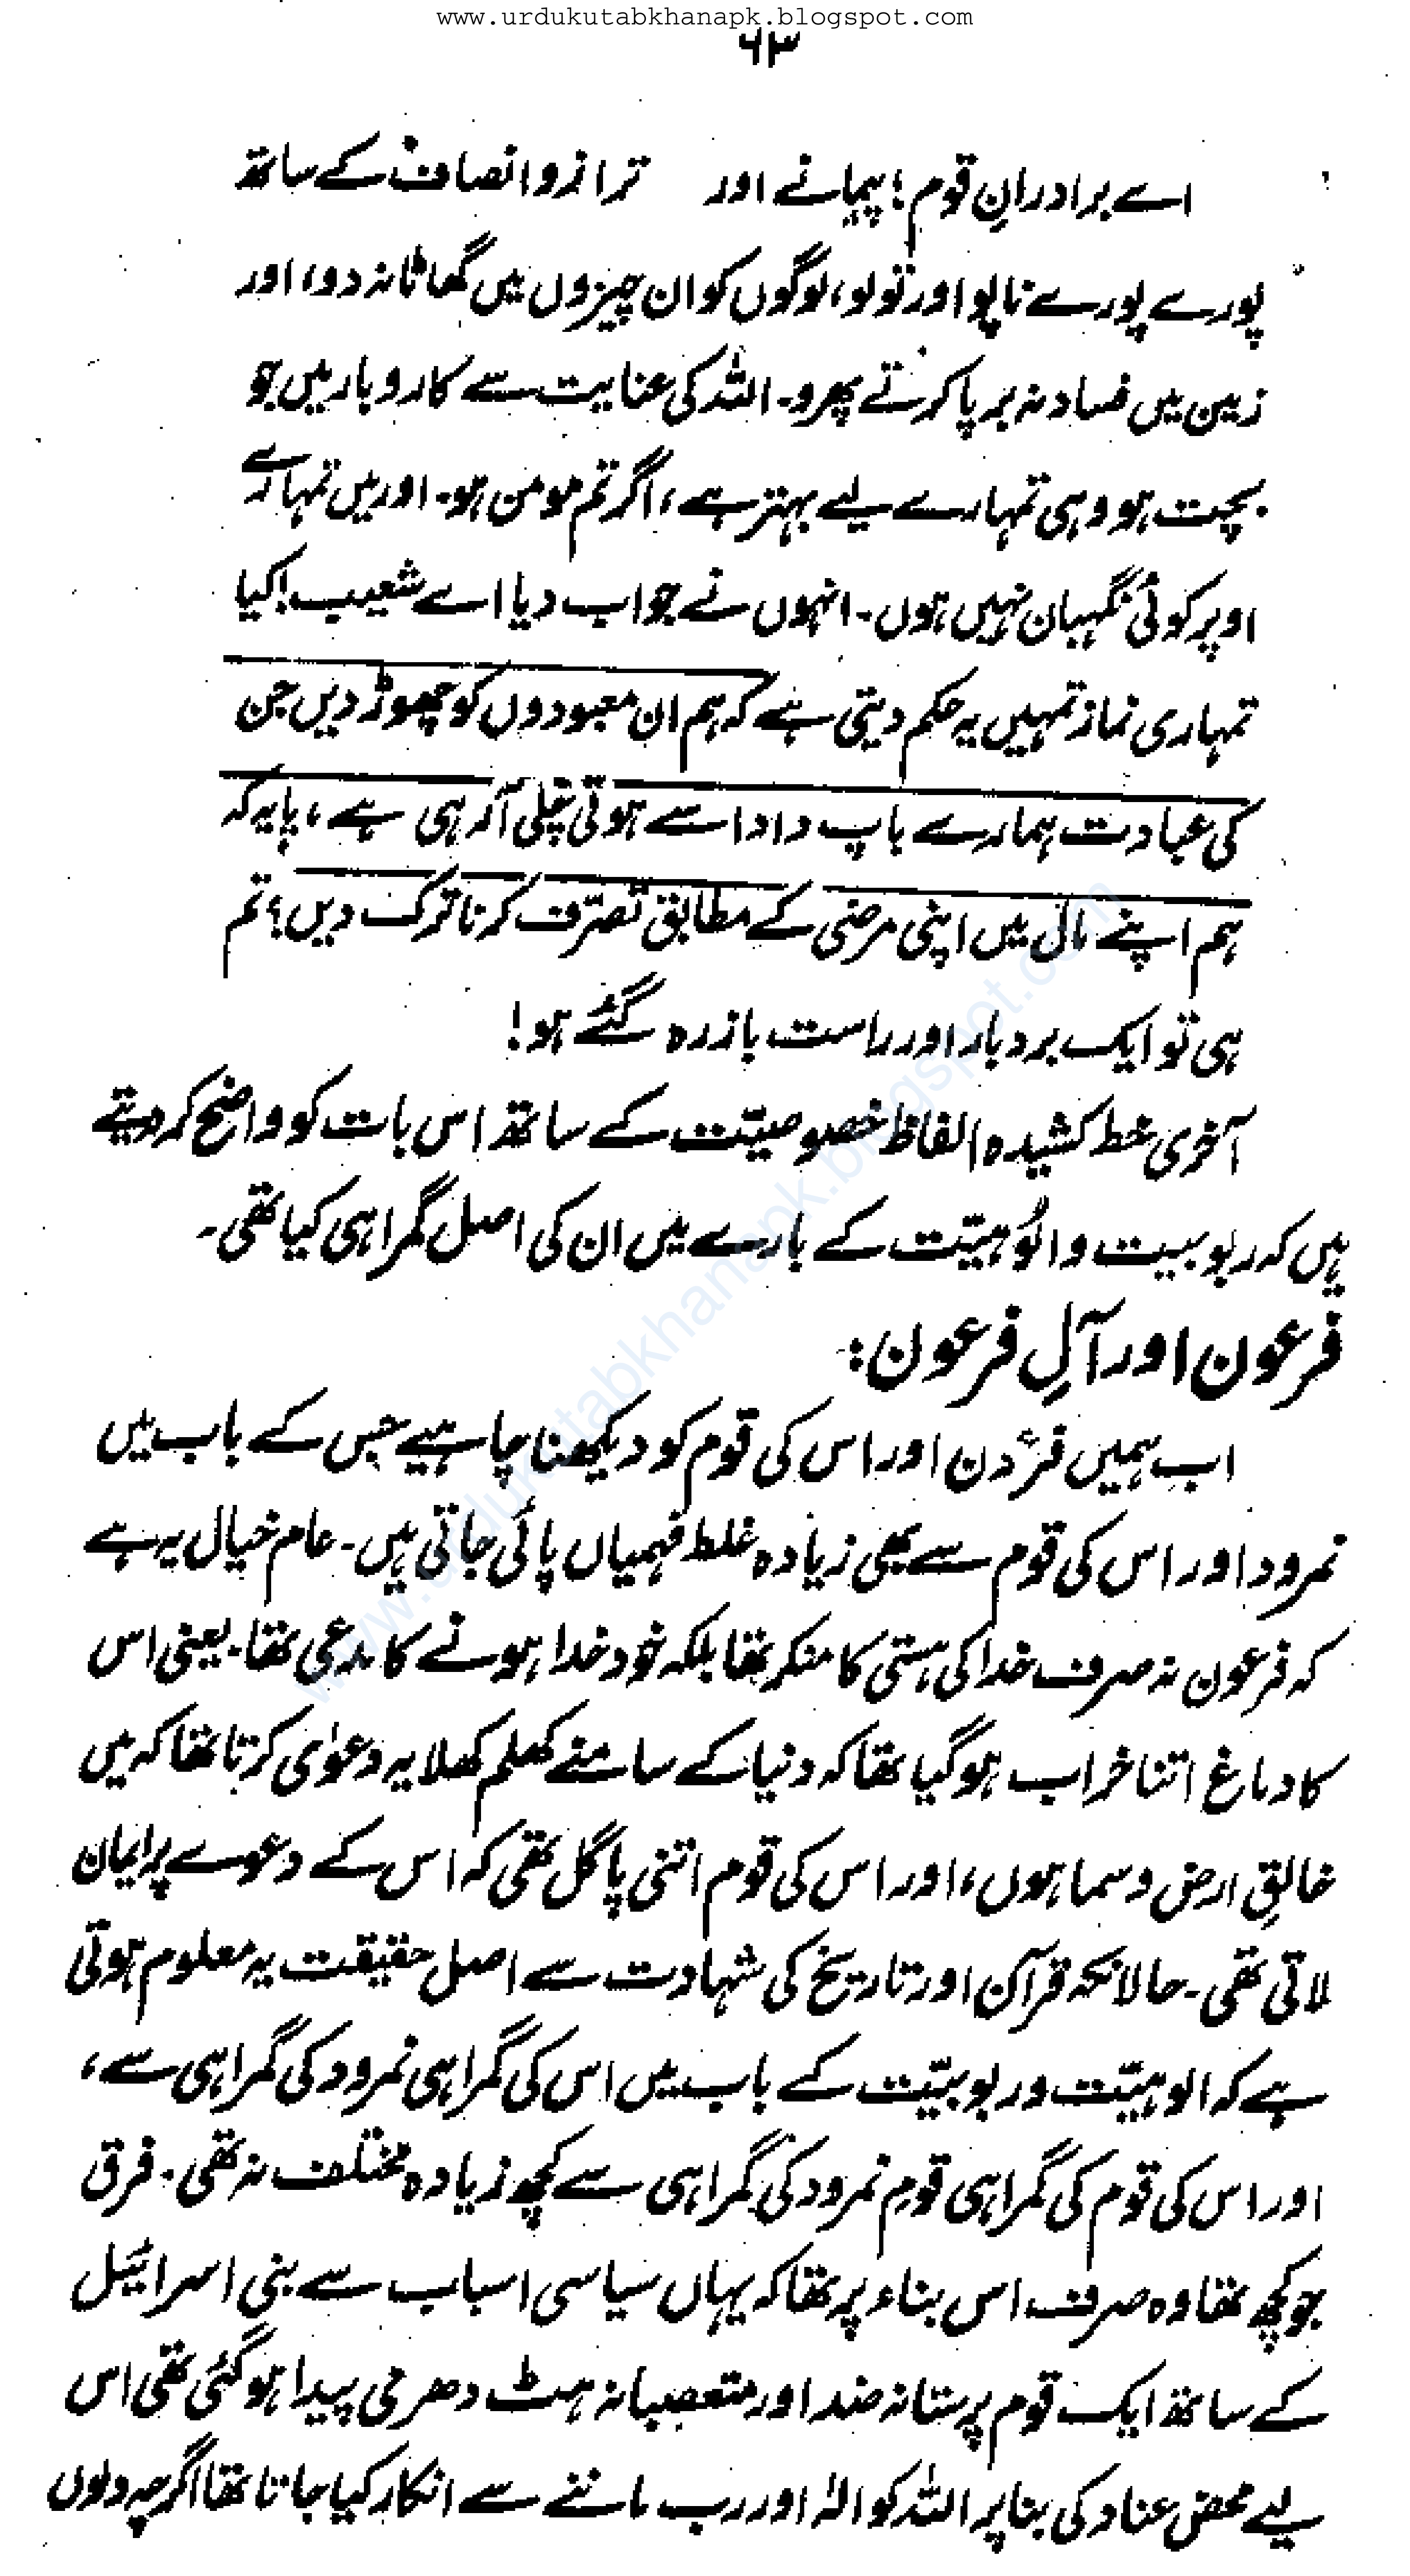 www.urdukutabkhanapk.blogspot.com
۶۳
اے برادرانِ قوم! پیمانے اور ترازو انصاف کے ساتھ
پورے پورے ناپو اور تولو، لوگوں کو ان چیزوں میں گھاٹا نہ دو، اور
زمین میں فساد نہ برپا کرتے پھرو۔ اللہ کی عنایت سے کاروبار میں جو
بچت ہو وہی تمہارے لیے بہتر ہے، اگر تم مومن ہو۔ اور میں تمہارے
اوپر کوئی نگہبان نہیں ہوں۔ انہوں نے جواب دیا اے شعیب! کیا
تمہاری نماز تمہیں یہ حکم دیتی ہے کہ ہم ان معبودوں کو چھوڑ دیں جن
کی عبادت ہمارے باپ دادا سے ہوتی چلی آ رہی ہے، یا یہ کہ
ہم اپنے مال میں اپنی مرضی کے مطابق تصرّف کرنا ترک دیں؟ تم
ہی تو ایک بردبار اور راست باز رہ گئے ہو!
آخری خط کشیدہ الفاظ خصوصیّت کے ساتھ اس بات کو واضح کر دیتے
ہیں کہ ربوبیت و الُوہیّت کے بارے میں ان کی اصل گمراہی کیا تھی۔
فرعون اور آلِ فرعون:
اب ہمیں فرعون اور اس کی قوم کو دیکھنا چاہیے جس کے باب میں
نمرود اور اس کی قوم سے بھی زیادہ غلط فہمیاں پائی جاتی ہیں۔ عام خیال یہ ہے
کہ فرعون نہ صرف خدا کی ہستی کا منکر تھا بلکہ خود خدا ہونے کا مدعی تھا۔ یعنی اس
کا دماغ اتنا خراب ہو گیا تھا کہ دنیا کے سامنے کھلم کھلا یہ دعوٰی کرتا تھا کہ میں
خالقِ ارض و سما ہوں، اور اس کی قوم اتنی پاگل تھی کہ اس کے دعوے پر ایمان
لاتی تھی۔ حالانکہ قرآن اور تاریخ کی شہادت سے اصل حقیقت یہ معلوم ہوتی
ہے کہ الوہیّت و ربوبیّت کے باب میں اس کی گمراہی نمرود کی گمراہی سے،
اور اس کی قوم کی گمراہی قومِ نمرود کی گمراہی سے کچھ زیادہ مختلف نہ تھی۔ فرق
جو کچھ تھا وہ صرف اس بناء پر تھا کہ یہاں سیاسی اسباب سے بنی اسرائیل
کے ساتھ ایک قوم پرستانہ ضد اور متعصبانہ ہٹ دھرمی پیدا ہو گئی تھی اس
لیے محض عناد کی بنا پر اللہ کو الٰہ اور رب ماننے سے انکار کیا جاتا تھا اگرچہ دلوں
www.urdukutabkhanapk.blogspot.com